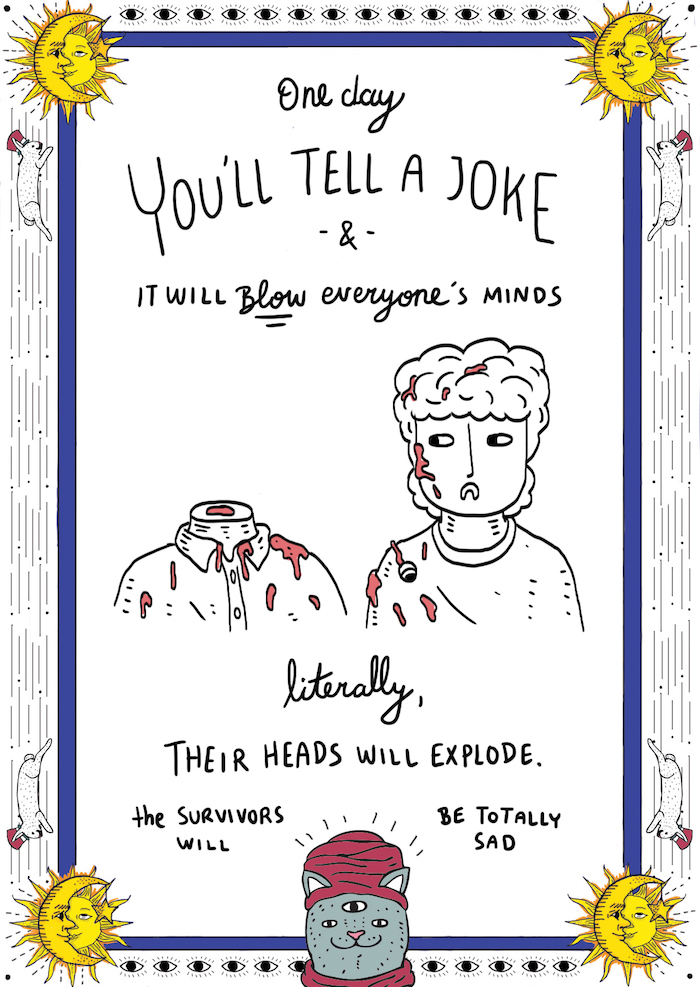 One day
YOU'LL TELL A JOKE
- & -
IT WILL Blow everyone's MINDS
literally,
THEIR HEADS WILL EXPLODE.
the SURVIVORS
WILL
BE TOTALLY
SAD